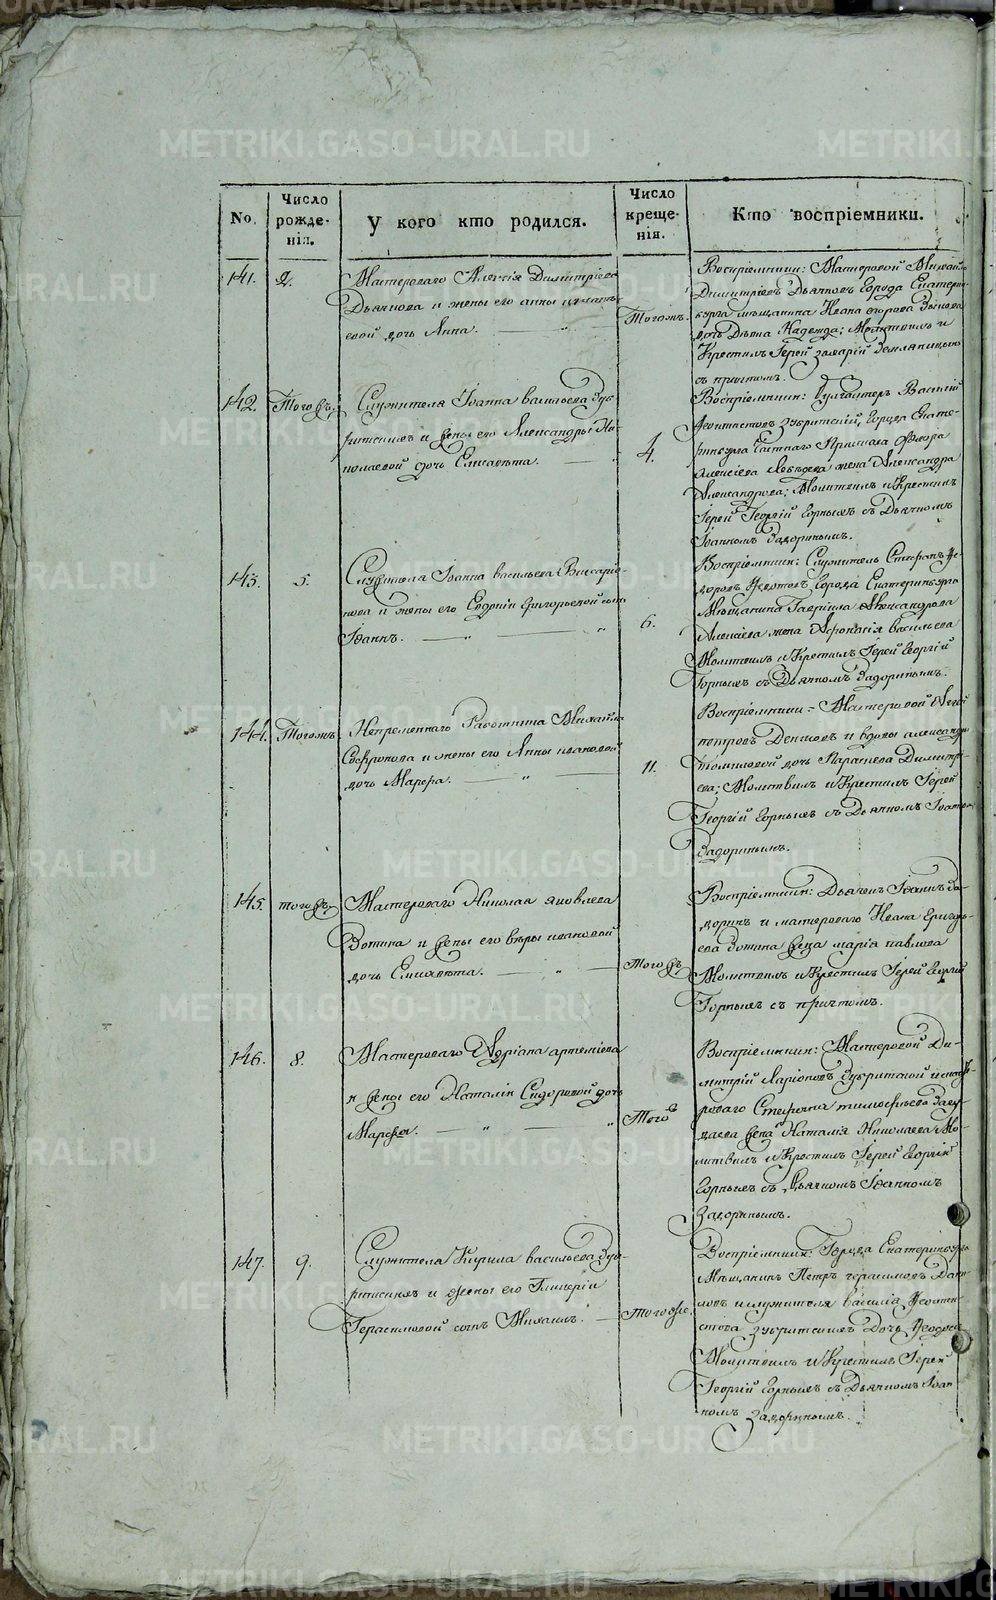 METRIKI.GASO-URAL.RU
No.
Число рожде-
нія.
У кого кто родился.
Число креще-
нія.
Кто воспріемники.
141.
2.
Мастероваго Алексія Димитріева
Дьячкова и жены его Анны
евой дочь Анна.
Тогожъ.
Воспріемники: Мастеровой Михайло
Димитріевъ Дьячковъ Города Екатерин-
бурга мѣщанина Ивана Егорова
дочь Дѣвка Надежда; Молитвилъ и
Крестилъ Іерей Захарій
съ причтомъ.
142.
Тогожъ.
Служителя Іоанна Васильева Зуб-
ритскихъ и жены его Александры Ни-
колаевой дочь Елисавѣта.
4.
Воспріемники: Бухгалтеръ Василій
Феоктистовъ Зубритскій, Города Екате-
ринбурга Частнаго Пристава Флора
Алексіева Лебедева жена Александра
Александрова; Молитвилъ и Крестилъ
Іерей Георгій Горныхъ съ Дьячкомъ
Іоанномъ Задоринымъ.
143.
5.
Служителя Іоанна Васильева Виссаріо-
нова и жены его Евдокіи Григорьевой сынъ
Іоаннъ.
6.
Воспріемники: Служитель Стефанъ Фе-
доровъ Города Екатеринбурга
Мѣщанина Гавріила Александрова
Алексіева жена Афонасія Васильева
Молитвилъ и Крестилъ Іерей Георгій
Горныхъ съ Дьячкомъ Задоринымъ.
144.
Тогожъ
Непременнаго Работника Михайла
Софронова и жены его Анны Ивановой
дочь Марфа.
11.
Воспріемники: Мастеровой
Петровъ Денисовъ и вдовы Александры
Томиловой дочь Парасковья Димитрі-
ева; Молитвилъ и Крестилъ Іерей
Георгій Горныхъ съ Дьячкомъ Іоанномъ
Задоринымъ.
145.
тогожъ
Мастероваго Николая Яковлева
Зотина и жены его Вѣры Ивановой
дочь Елисавѣта.
Тогожъ
Воспріемники: Дьячекъ Іоаннъ За-
доринъ и мастероваго Ивана Григорь-
ева Зотина жена Марія Павлова
Молитвилъ и Крестилъ Іерей Георгій
Горныхъ съ причтомъ.
146.
8.
Мастероваго Адріана Артеміева
и жены его Наталіи Сидоровой дочь
Марфа.
Тогож
Воспріемники: Мастеровой Ди-
митрій Ларіоновъ Зубритской и масте-
роваго Стефана Тимофѣева
жена Наталія Николаева Мо-
литвилъ и Крестилъ Іерей Георгій
Горныхъ съ Дьячкомъ Іоанномъ
Задоринымъ.
147.
9.
Служителя Кирила Васильева Зуб-
ритскихъ и жены его Гликеріи
Герасимовой сынъ Михаилъ.
Тогоже.
Воспріемники: Города Екатеринбурга
Мѣщанинъ Петръ Герасимовъ Дани-
ловъ и служителя Василія Феокти-
стова Зубритскихъ Дочь Феодосія
Молитвилъ и Крестилъ Іерей
Георгій Горныхъ съ Дьячкомъ Іоан-
номъ Задоринымъ.